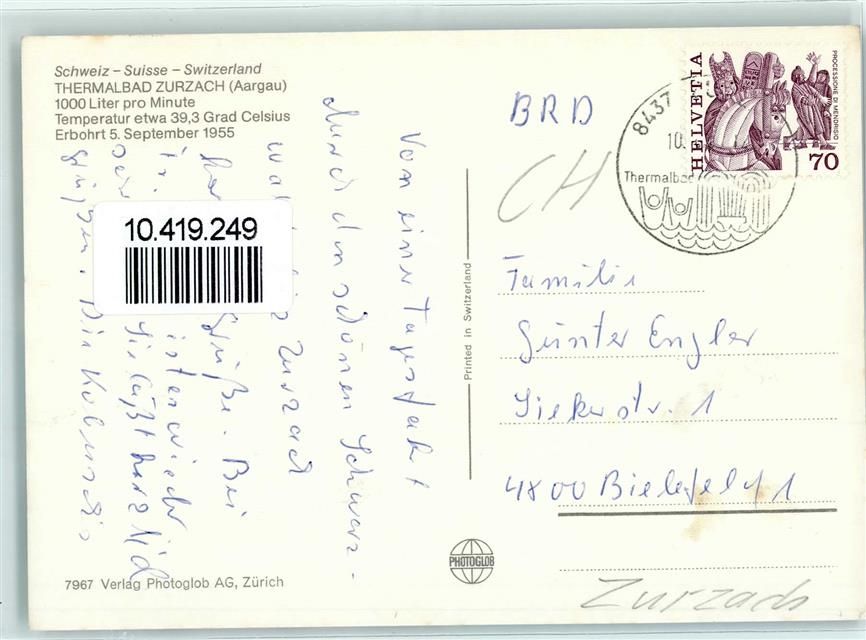 Schweiz – Suisse – Switzerland
THERMALBAD ZURZACH (Aargau)
1000 Liter pro Minute
Temperatur etwa 39,3 Grad Celsius
Erbohrt 5. September 1955
Von einer Tagesfahrt
durch den schönen Schwarz-
Zurzach
Grüße. Bei
ist er wieder
Sie läßt herzlich
grüßen. Die
10.419.249
7967 Verlag Photoglob AG, Zürich
Printed in Switzerland
PHOTOGLOB
BRD
CH
8437
10.
Thermalbad
HELVETIA
PROCESSIONE DI MENDRISIO
70
Familie
Günter Engler
Siekerstr. 1
4800 Bielefeld 1
Zurzach